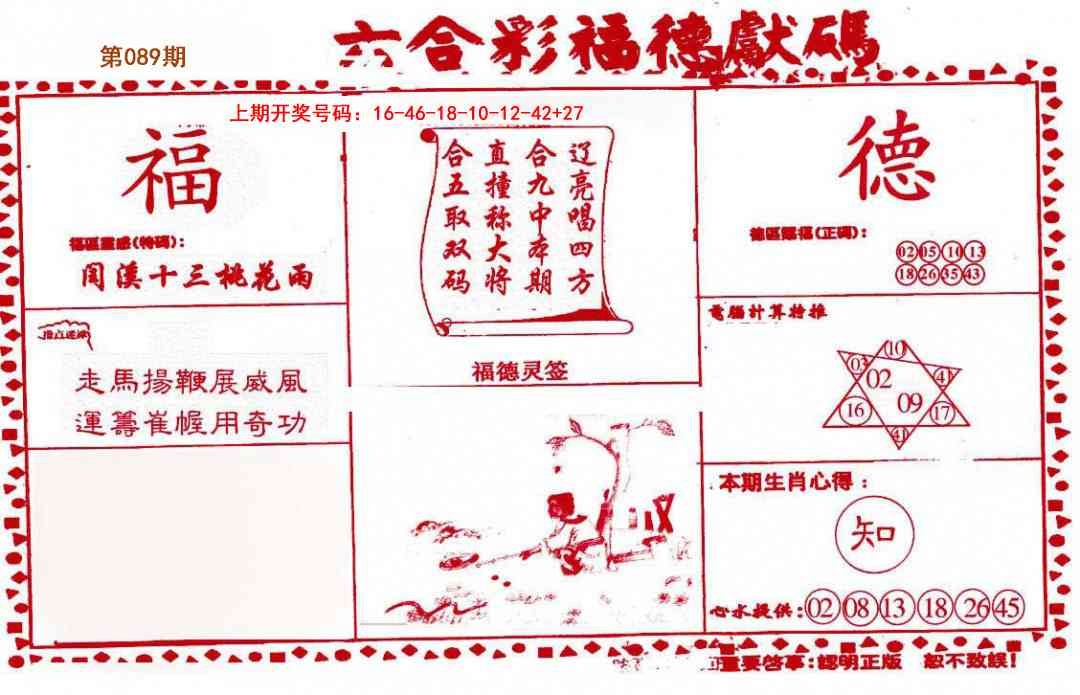 六合彩福德獻碼
第089期
上期开奖号码：16-46-18-10-12-42+27
福
福區靈感(特碼)：
闊溪十三桃花雨
走馬揚鞭展威風
運籌崔幄用奇功
辽亮唱四方
合九中本期
直撞称大将
合五取双码
福德灵签
德
德區賜福(正碼)：
02 05 10 13
18 26 35 43
電腦計算特推
10
03 02 41
16 09 17
41
本期生肖心得：
知
心水提供：02 08 13 18 26 45
重要啓事：認明正版 恕不致誤！